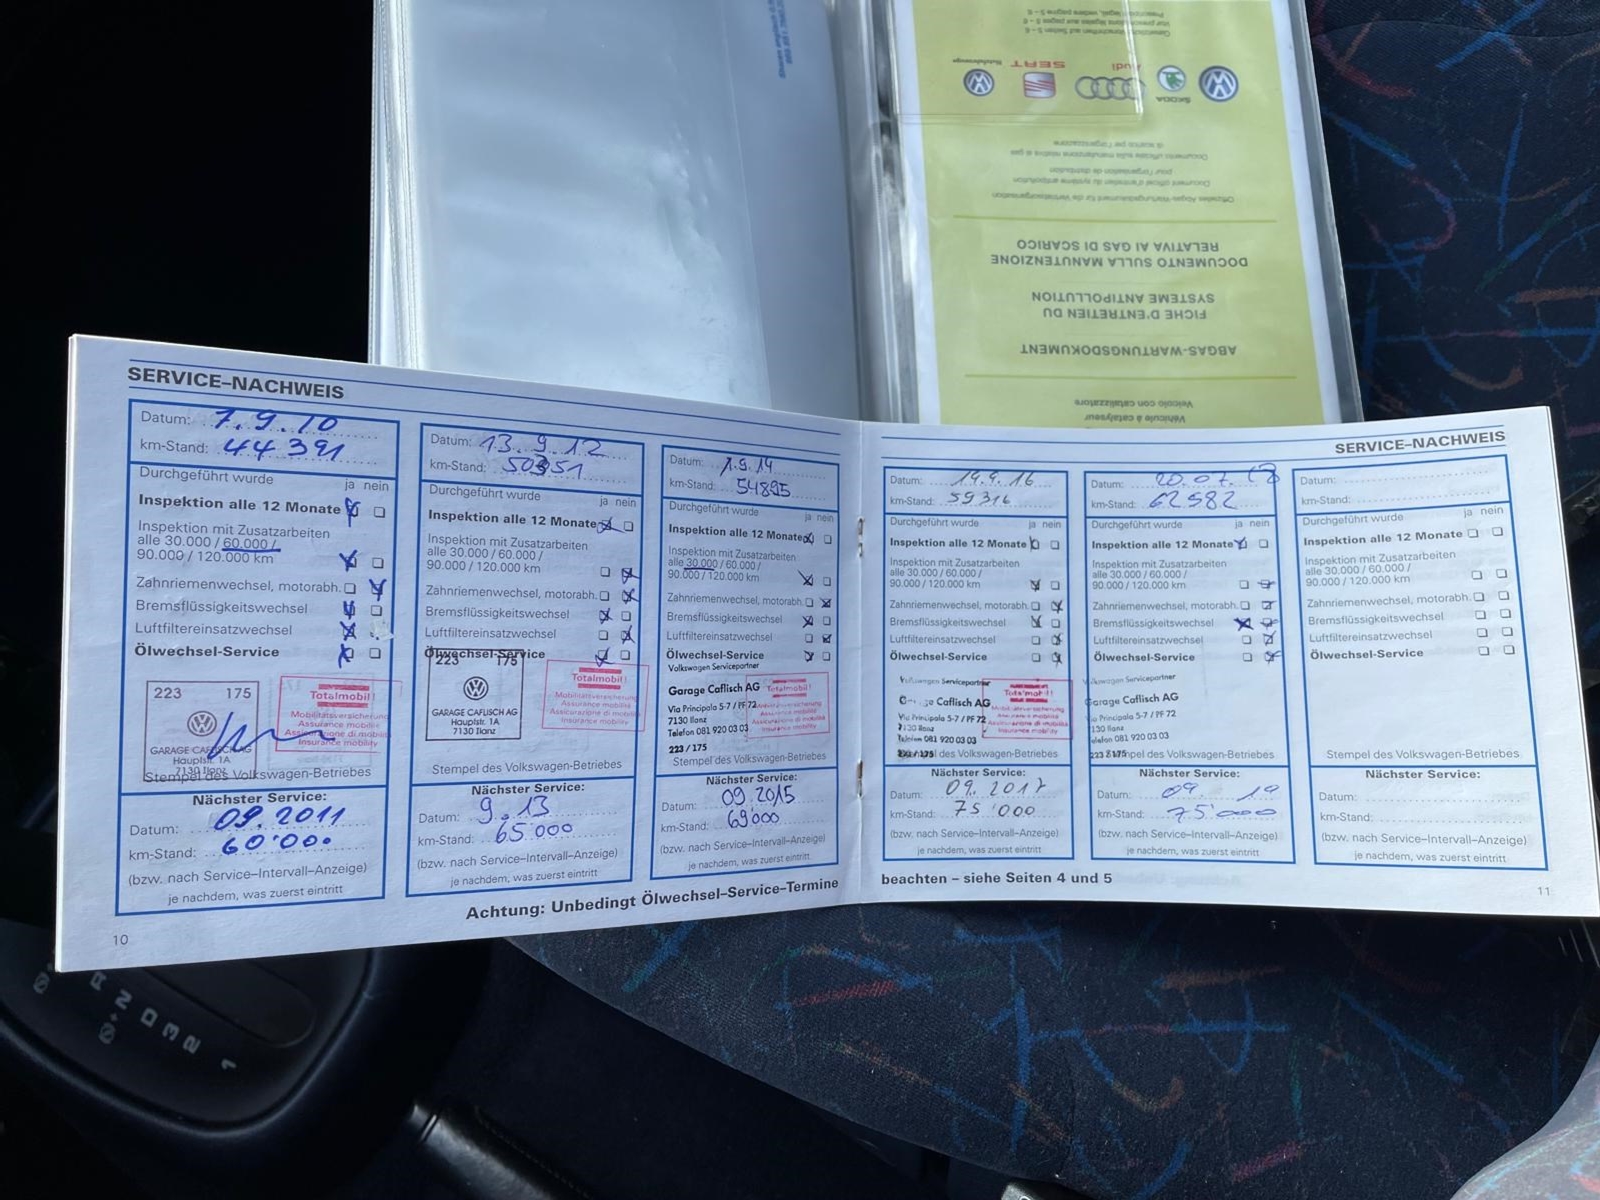 SERVICE–NACHWEIS
Datum: 7.9.10
km-Stand: 44391
Durchgeführt wurde
ja nein
Inspektion alle 12 Monate
Inspektion mit Zusatzarbeiten
alle 30.000 / 60.000 /
90.000 / 120.000 km
Zahnriemenwechsel, motorabh.
Bremsflüssigkeitswechsel
Luftfiltereinsatzwechsel
Ölwechsel-Service
223 175
GARAGE CAFLISCH AG
Hauptstr. 1A
7130 Ilanz
Totalmobil!
Mobilitätsversicherung
Assurance mobilité
Assicurazione di mobilità
Insurance mobility
Stempel des Volkswagen-Betriebes
Nächster Service:
Datum: 09.2011
km-Stand: 60'000
(bzw. nach Service–Intervall–Anzeige)
je nachdem, was zuerst eintritt
10
Datum: 13.9.12
km-Stand: 50351
Durchgeführt wurde
ja nein
Inspektion alle 12 Monate
Inspektion mit Zusatzarbeiten
alle 30.000 / 60.000 /
90.000 / 120.000 km
Zahnriemenwechsel, motorabh.
Bremsflüssigkeitswechsel
Luftfiltereinsatzwechsel
Ölwechsel-Service
223 175
GARAGE CAFLISCH AG
Hauptstr. 1A
7130 Ilanz
Totalmobil!
Mobilitätsversicherung
Assurance mobilité
Assicurazione di mobilità
Insurance mobility
Stempel des Volkswagen-Betriebes
Nächster Service:
Datum: 9.13
km-Stand: 65.000
(bzw. nach Service–Intervall–Anzeige)
je nachdem, was zuerst eintritt
Datum: 1.9.14
km-Stand: 54895
Durchgeführt wurde
ja nein
Inspektion alle 12 Monate
Inspektion mit Zusatzarbeiten
alle 30.000 / 60.000 /
90.000 / 120.000 km
Zahnriemenwechsel, motorabh.
Bremsflüssigkeitswechsel
Luftfiltereinsatzwechsel
Ölwechsel-Service
Volkswagen Servicepartner
Garage Caflisch AG
Via Principala 5-7 / PF 72
7130 Ilanz
Telefon 081 920 03 03
223 / 175
Totalmobil!
Stempel des Volkswagen-Betriebes
Nächster Service:
Datum: 09.2015
km-Stand: 69'000
(bzw. nach Service–Intervall–Anzeige)
je nachdem, was zuerst eintritt
Achtung: Unbedingt Ölwechsel–Service–Termine
SERVICE–NACHWEIS
Datum: 19.9.16
km-Stand: 59316
Durchgeführt wurde
ja nein
Inspektion alle 12 Monate
Inspektion mit Zusatzarbeiten
alle 30.000 / 60.000 /
90.000 / 120.000 km
Zahnriemenwechsel, motorabh.
Bremsflüssigkeitswechsel
Luftfiltereinsatzwechsel
Ölwechsel-Service
Volkswagen Servicepartner
AG
Via Principala 5-7 / PF 72
7130 Ilanz
Telefon 081 920 03 03
Totalmobil!
Stempel des Volkswagen-Betriebes
Nächster Service:
Datum: 09.2017
km-Stand: 75'000
(bzw. nach Service–Intervall–Anzeige)
je nachdem, was zuerst eintritt
Datum: 20.07.18
km-Stand: 62582
Durchgeführt wurde
ja nein
Inspektion alle 12 Monate
Inspektion mit Zusatzarbeiten
alle 30.000 / 60.000 /
90.000 / 120.000 km
Zahnriemenwechsel, motorabh.
Bremsflüssigkeitswechsel
Luftfiltereinsatzwechsel
Ölwechsel-Service
Volkswagen Servicepartner
Garage Caflisch AG
Via Principala 5-7 / PF 72
7130 Ilanz
Telefon 081 920 03 03
Stempel des Volkswagen-Betriebes
Nächster Service:
Datum: 09 19
km-Stand: 75'000
(bzw. nach Service–Intervall–Anzeige)
je nachdem, was zuerst eintritt
Datum:
km-Stand:
Durchgeführt wurde
ja nein
Inspektion alle 12 Monate
Inspektion mit Zusatzarbeiten
alle 30.000 / 60.000 /
90.000 / 120.000 km
Zahnriemenwechsel, motorabh.
Bremsflüssigkeitswechsel
Luftfiltereinsatzwechsel
Ölwechsel-Service
Stempel des Volkswagen-Betriebes
Nächster Service:
Datum:
km-Stand:
(bzw. nach Service–Intervall–Anzeige)
je nachdem, was zuerst eintritt
beachten – siehe Seiten 4 und 5
11
Véhicule à catalyseur
Veicolo con catalizzatore
ABGAS-WARTUNGSDOKUMENT
FICHE D'ENTRETIEN DU
SYSTEME ANTIPOLLUTION
DOCUMENTO SULLA MANUTENZIONE
RELATIVA AI GAS DI SCARICO
Offizielles Abgas-Wartungsdokument für die Vertriebsorganisation
Document officiel d'entretien du système antipollution
pour l'organisation de distribution
Documento ufficiale sulla manutenzione relativa ai gas
di scarico per l'organizzazione
ŠKODA
Audi
SEAT
Nutzfahrzeuge
Gesetzliche Vorschriften auf Seiten 5 - 6
Voir prescriptions légales aux pages 5 - 6
Prescrizioni legali, vedere pagine 5 - 6
R
N
D
3
2
1